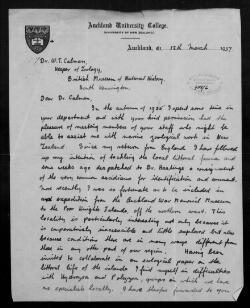 Auckland University College.
(UNIVERSITY OF NEW ZEALAND)
Auckland, C1 12th March 1937.
Dr. W. T. Calman,
Keeper of Zoology,
British Museum of Natural History,
South Kensington.
Dear Dr. Calman,
In the autumn of 1936 I spent some time in
your department and with your kind permission had the
pleasure of meeting members of your staff who might be
able to assist me with marine zoological work in New
Zealand. Since my return from England I have followed
up my intention of tackling the local littoral fauna and
some weeks ago despatched to Dr. Hastings a consignment of
the more common ascidians for identification and comment.
More recently I was so fortunate as to be included in
an expedition from the Auckland War Memorial Museum
to the Poor Knights Islands off the northern coast. This
locality is particularly interesting not only because it
is comparatively inaccessible and little explored but also
because conditions there are in many ways different from
those in any other part of our region. Having been
invited to collaborate in an ecological paper on the
littoral life of the islands I find myself in difficulties
with Hydrozoa and Polyzoa, groups in which we have
no specialists locally. I have therefore forwarded to you